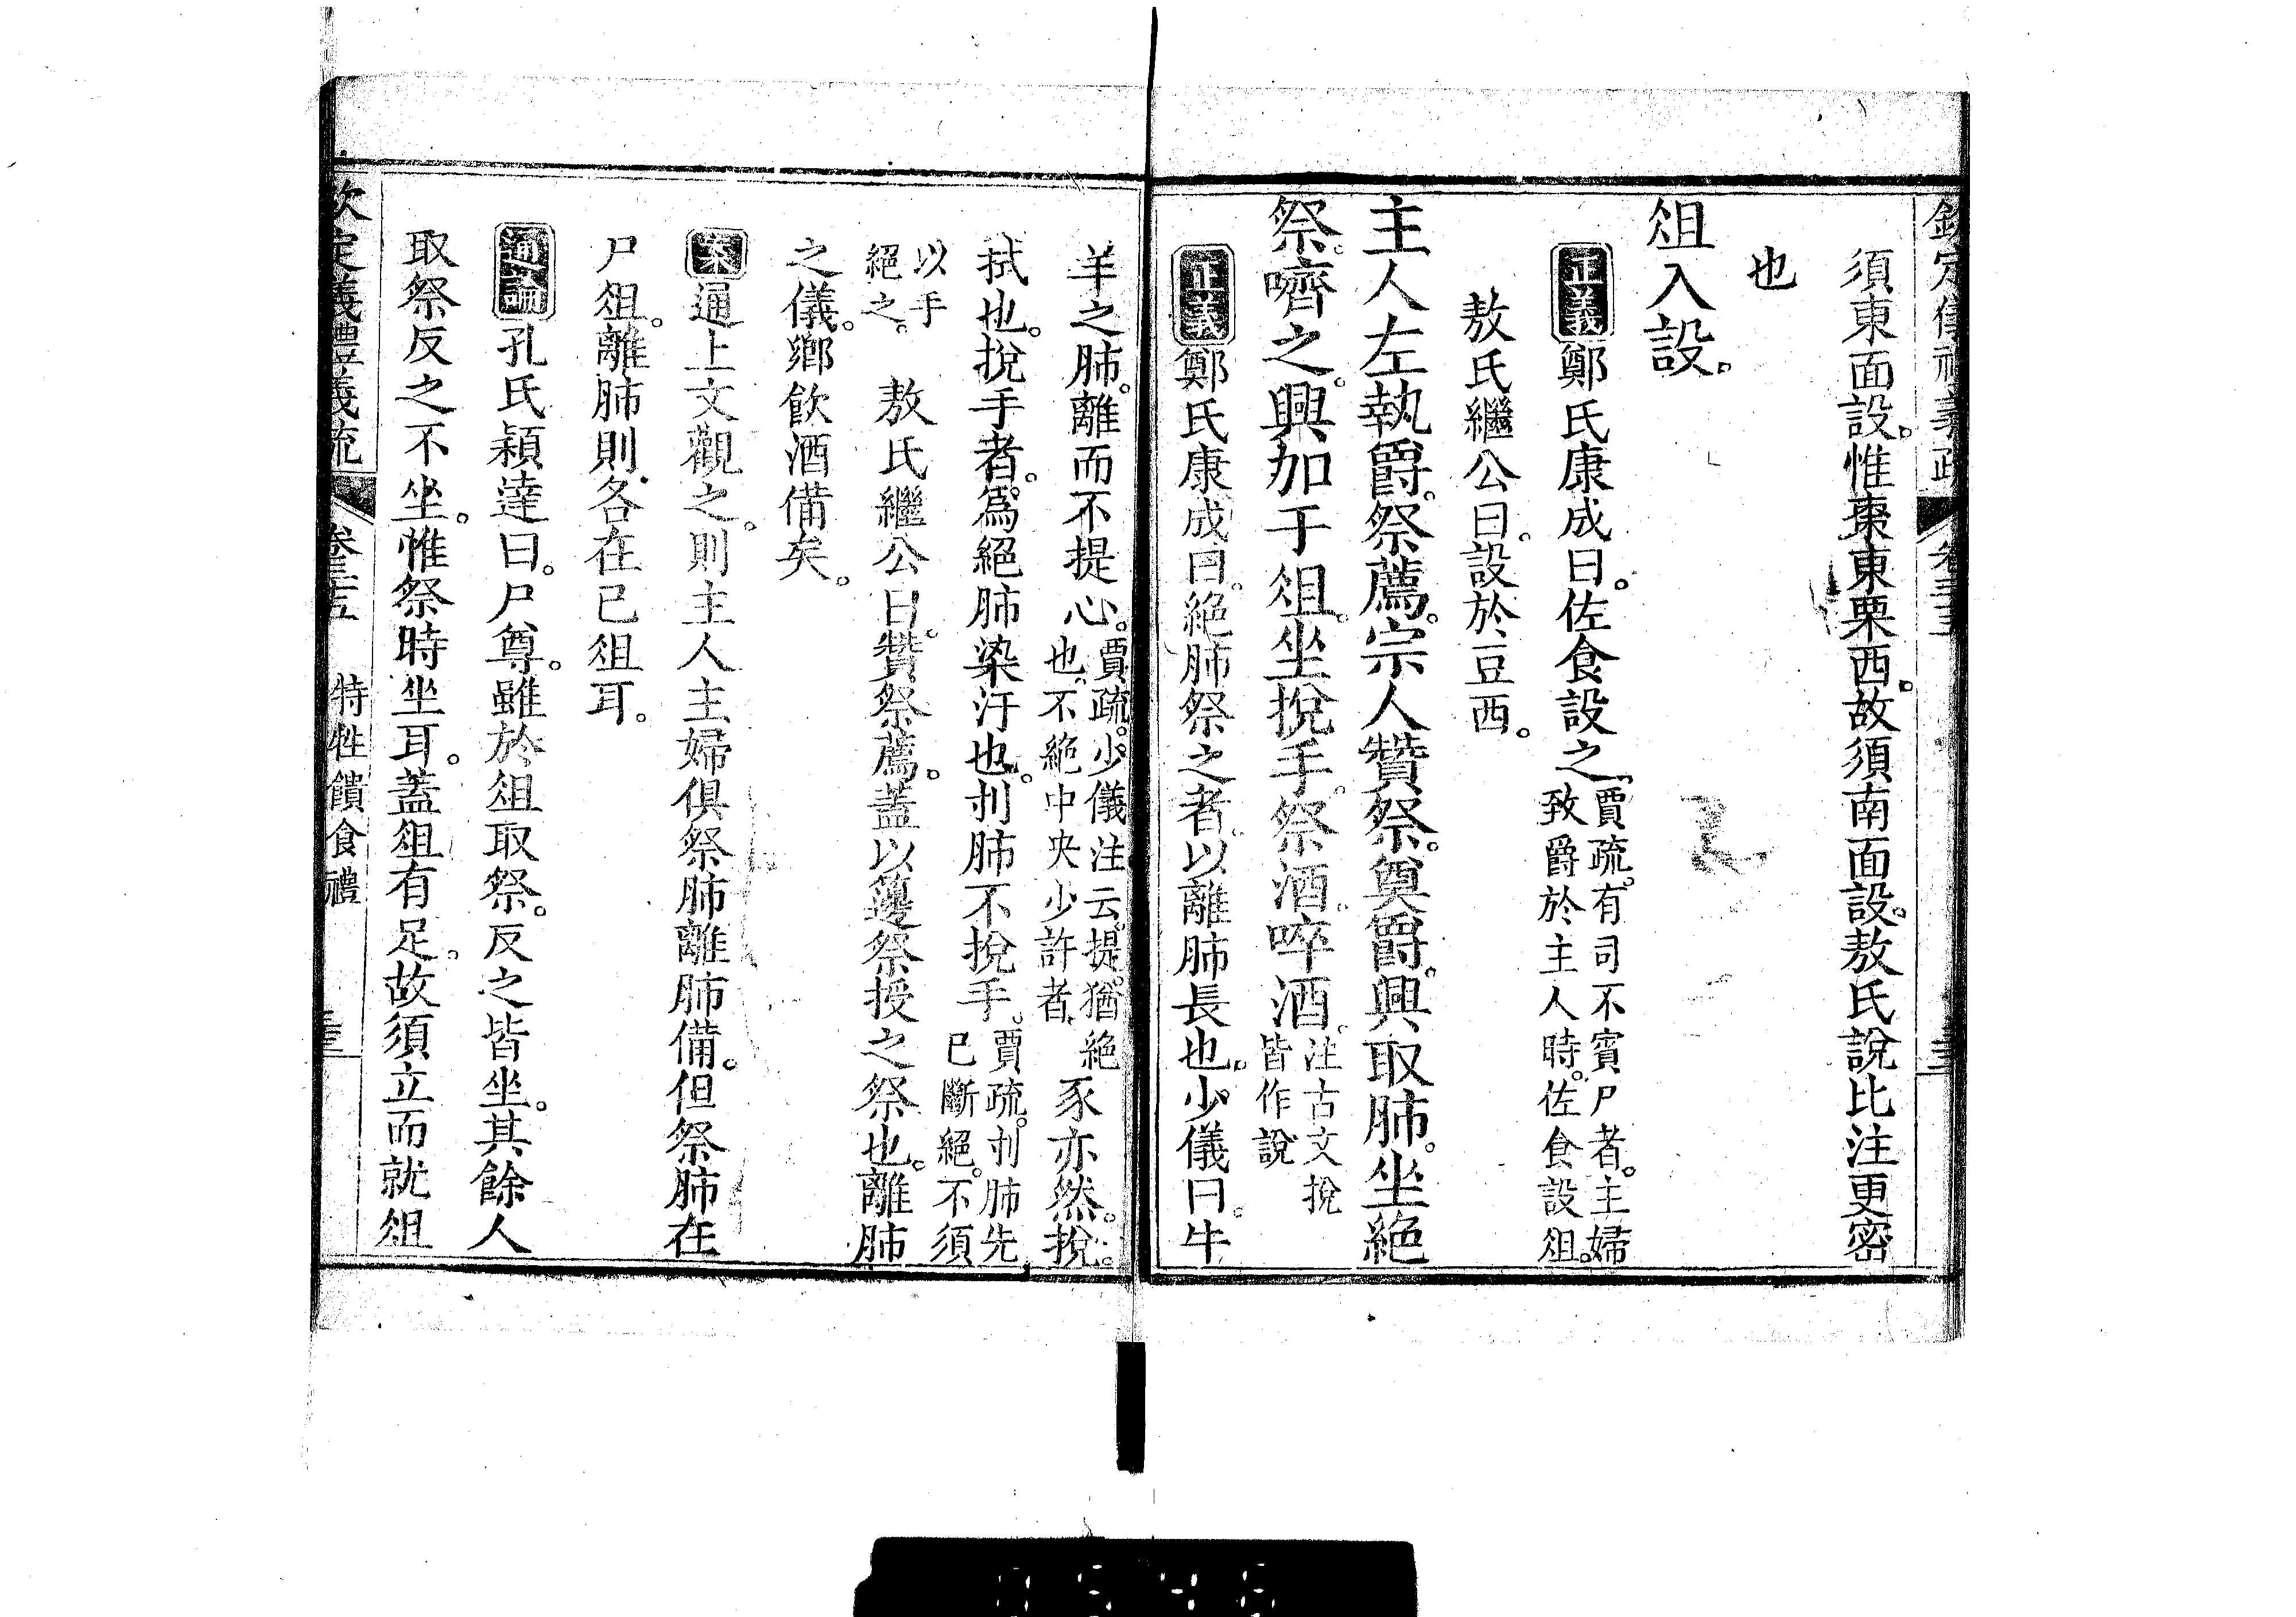 須東面設。惟棗東栗西。故須南面設。敖氏說比注更密
也
俎入設。
正義鄭氏康成曰。佐食設之。賈疏。有司不賓尸者。主婦
致爵於主人時。佐食設俎。
敖氏繼公曰。設於豆西。
主人左執爵。祭薦。宗人贊祭。奠爵。興取肺。坐絕
祭。嚌之。興加于俎。坐挩手。祭酒。啐酒。注古文挩
皆作說
正義鄭氏康成曰。絕肺祭之者。以離肺長也。少儀曰。牛
羊之肺。離而不提心。賈疏。少儀注云。提。猶絕
也。不絕中央少許者。豕亦然。挩。
拭也。挩手者。為絕肺染汙也。刌肺不挩手。賈疏。刌肺先
已斷絕。不須
以手
絕之。敖氏繼公曰。贊祭薦。蓋以籩祭授之祭也。離肺
之儀。鄉飲酒備矣。
案通上文觀之。則主人主婦俱祭肺離肺備。但祭肺在
尸俎。離肺則各在已俎耳。
通論孔氏穎達曰。尸尊。雖於俎取祭。反之皆坐。其餘人
取祭反之不坐。惟祭時坐耳。蓋俎有足。故須立而就俎
欽定義禮義疏 卷三十五 特牲饋食禮